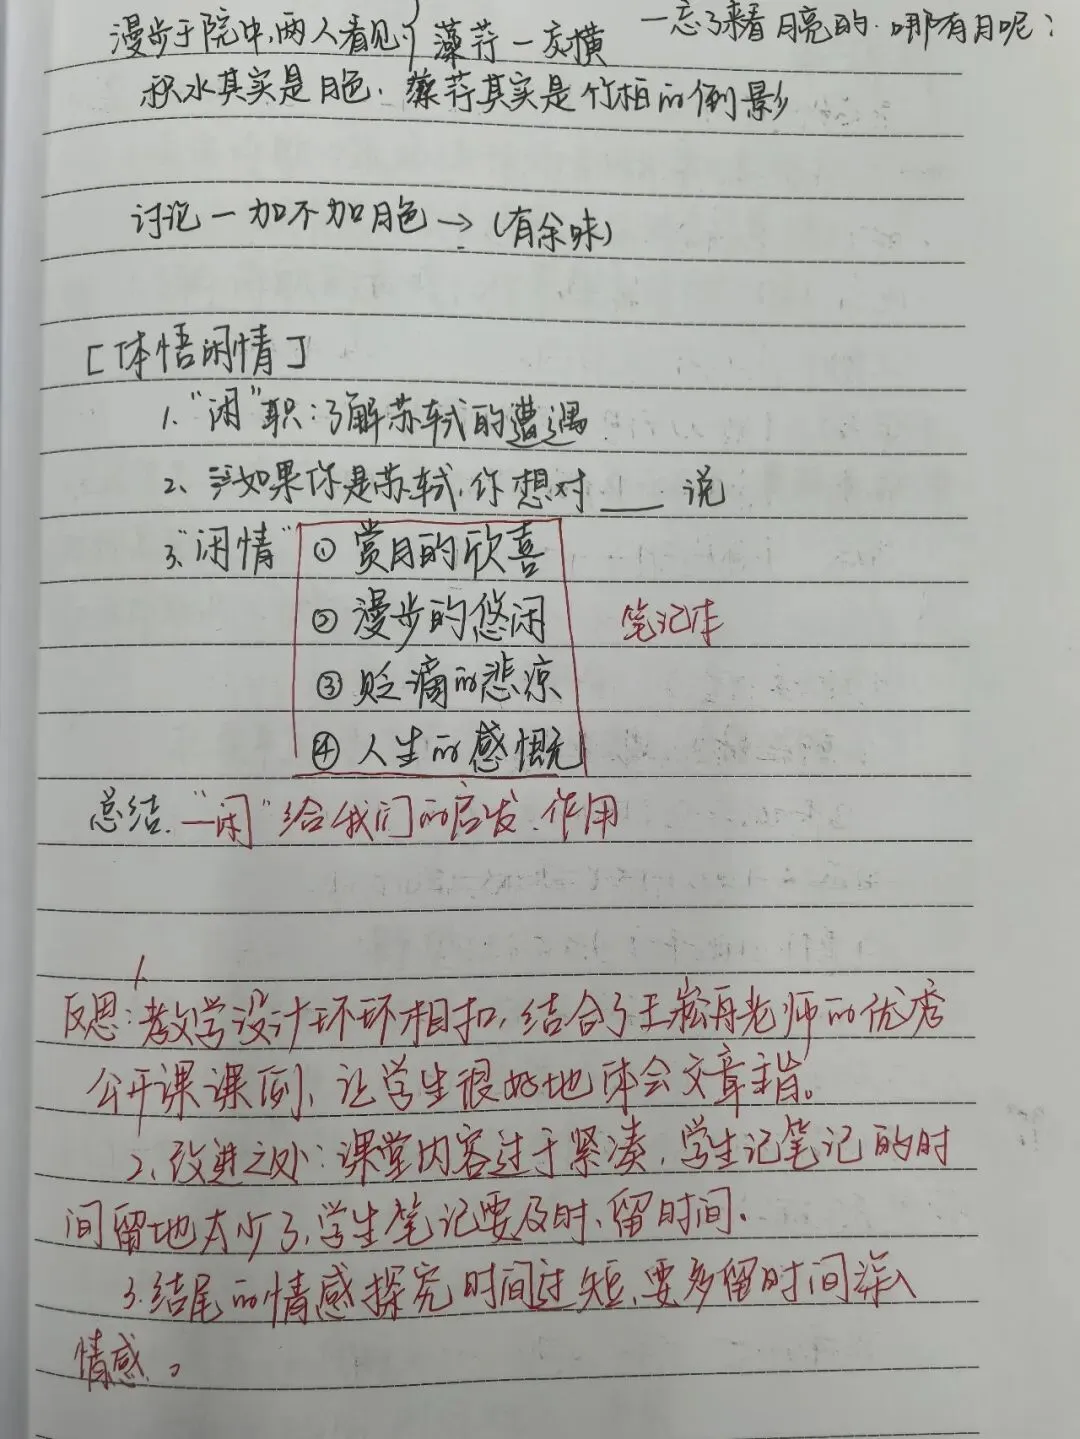 漫步于院中,两人看见{藻荇一交横 一忘了来看月亮的.哪有月呢?
积水其实是月色.藻荇其实是竹柏的倒影
讨论一加不加月色→(有余味)
[体悟闲情]
1."闲"职:了解苏轼的遭遇.
2、如果你是苏轼,你想对___说
3."闲情" ①赏月的欣喜
②漫步的悠闲 笔记本
③贬谪的悲凉
④人生的感慨
总结."闲"给我们的启发、作用
1.
反思:教学设计环环相扣,结合了王崧舟老师的优秀
公开课课例、让学生很好地体会文章主旨。
2、改进之处:课堂内容过于紧凑,学生记笔记的时
间留地太少了,学生笔记要及时、留时间.
3.结尾的情感探究时间过短,要多留时间深入
情感。